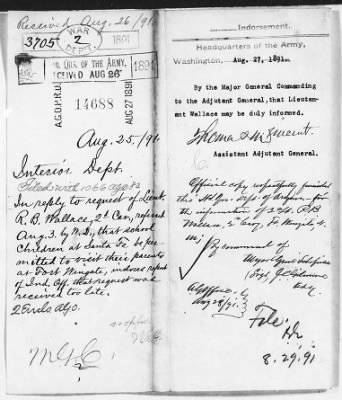 Received Aug. 26/91.
3705
WAR
2
DEPT.
1891
HD. QRS. OF THE ARMY,
1891
RECEIVED AUG 26
A.G.O.P.R.D.
14688
AUG 27 1891
Aug. 25/91
Interior Dept.
Filed with 1066
In reply to request of Lieut.
R. B. Wallace, 2d Cav, referred
Aug. 3. by W.D., that school
children at Santa Fe be per-
mitted to visit their parents
at Fort Wingate, indorses report
of Ind. Off. that request was
received too late.
2 Encls Ago.
2
Indorsement.
Headquarters of the Army,
Washington, Aug. 27, 1891.
By the Major General Commanding
to the Adjutant General, that Lieuten-
ant Wallace may be duly informed.
Assistant Adjutant General.
Official copy respectfully furnished
the information of
Wallace, 2 Cav, Ft. Wingate, N.
By command of
Aug 28/91.
File
8.29.91